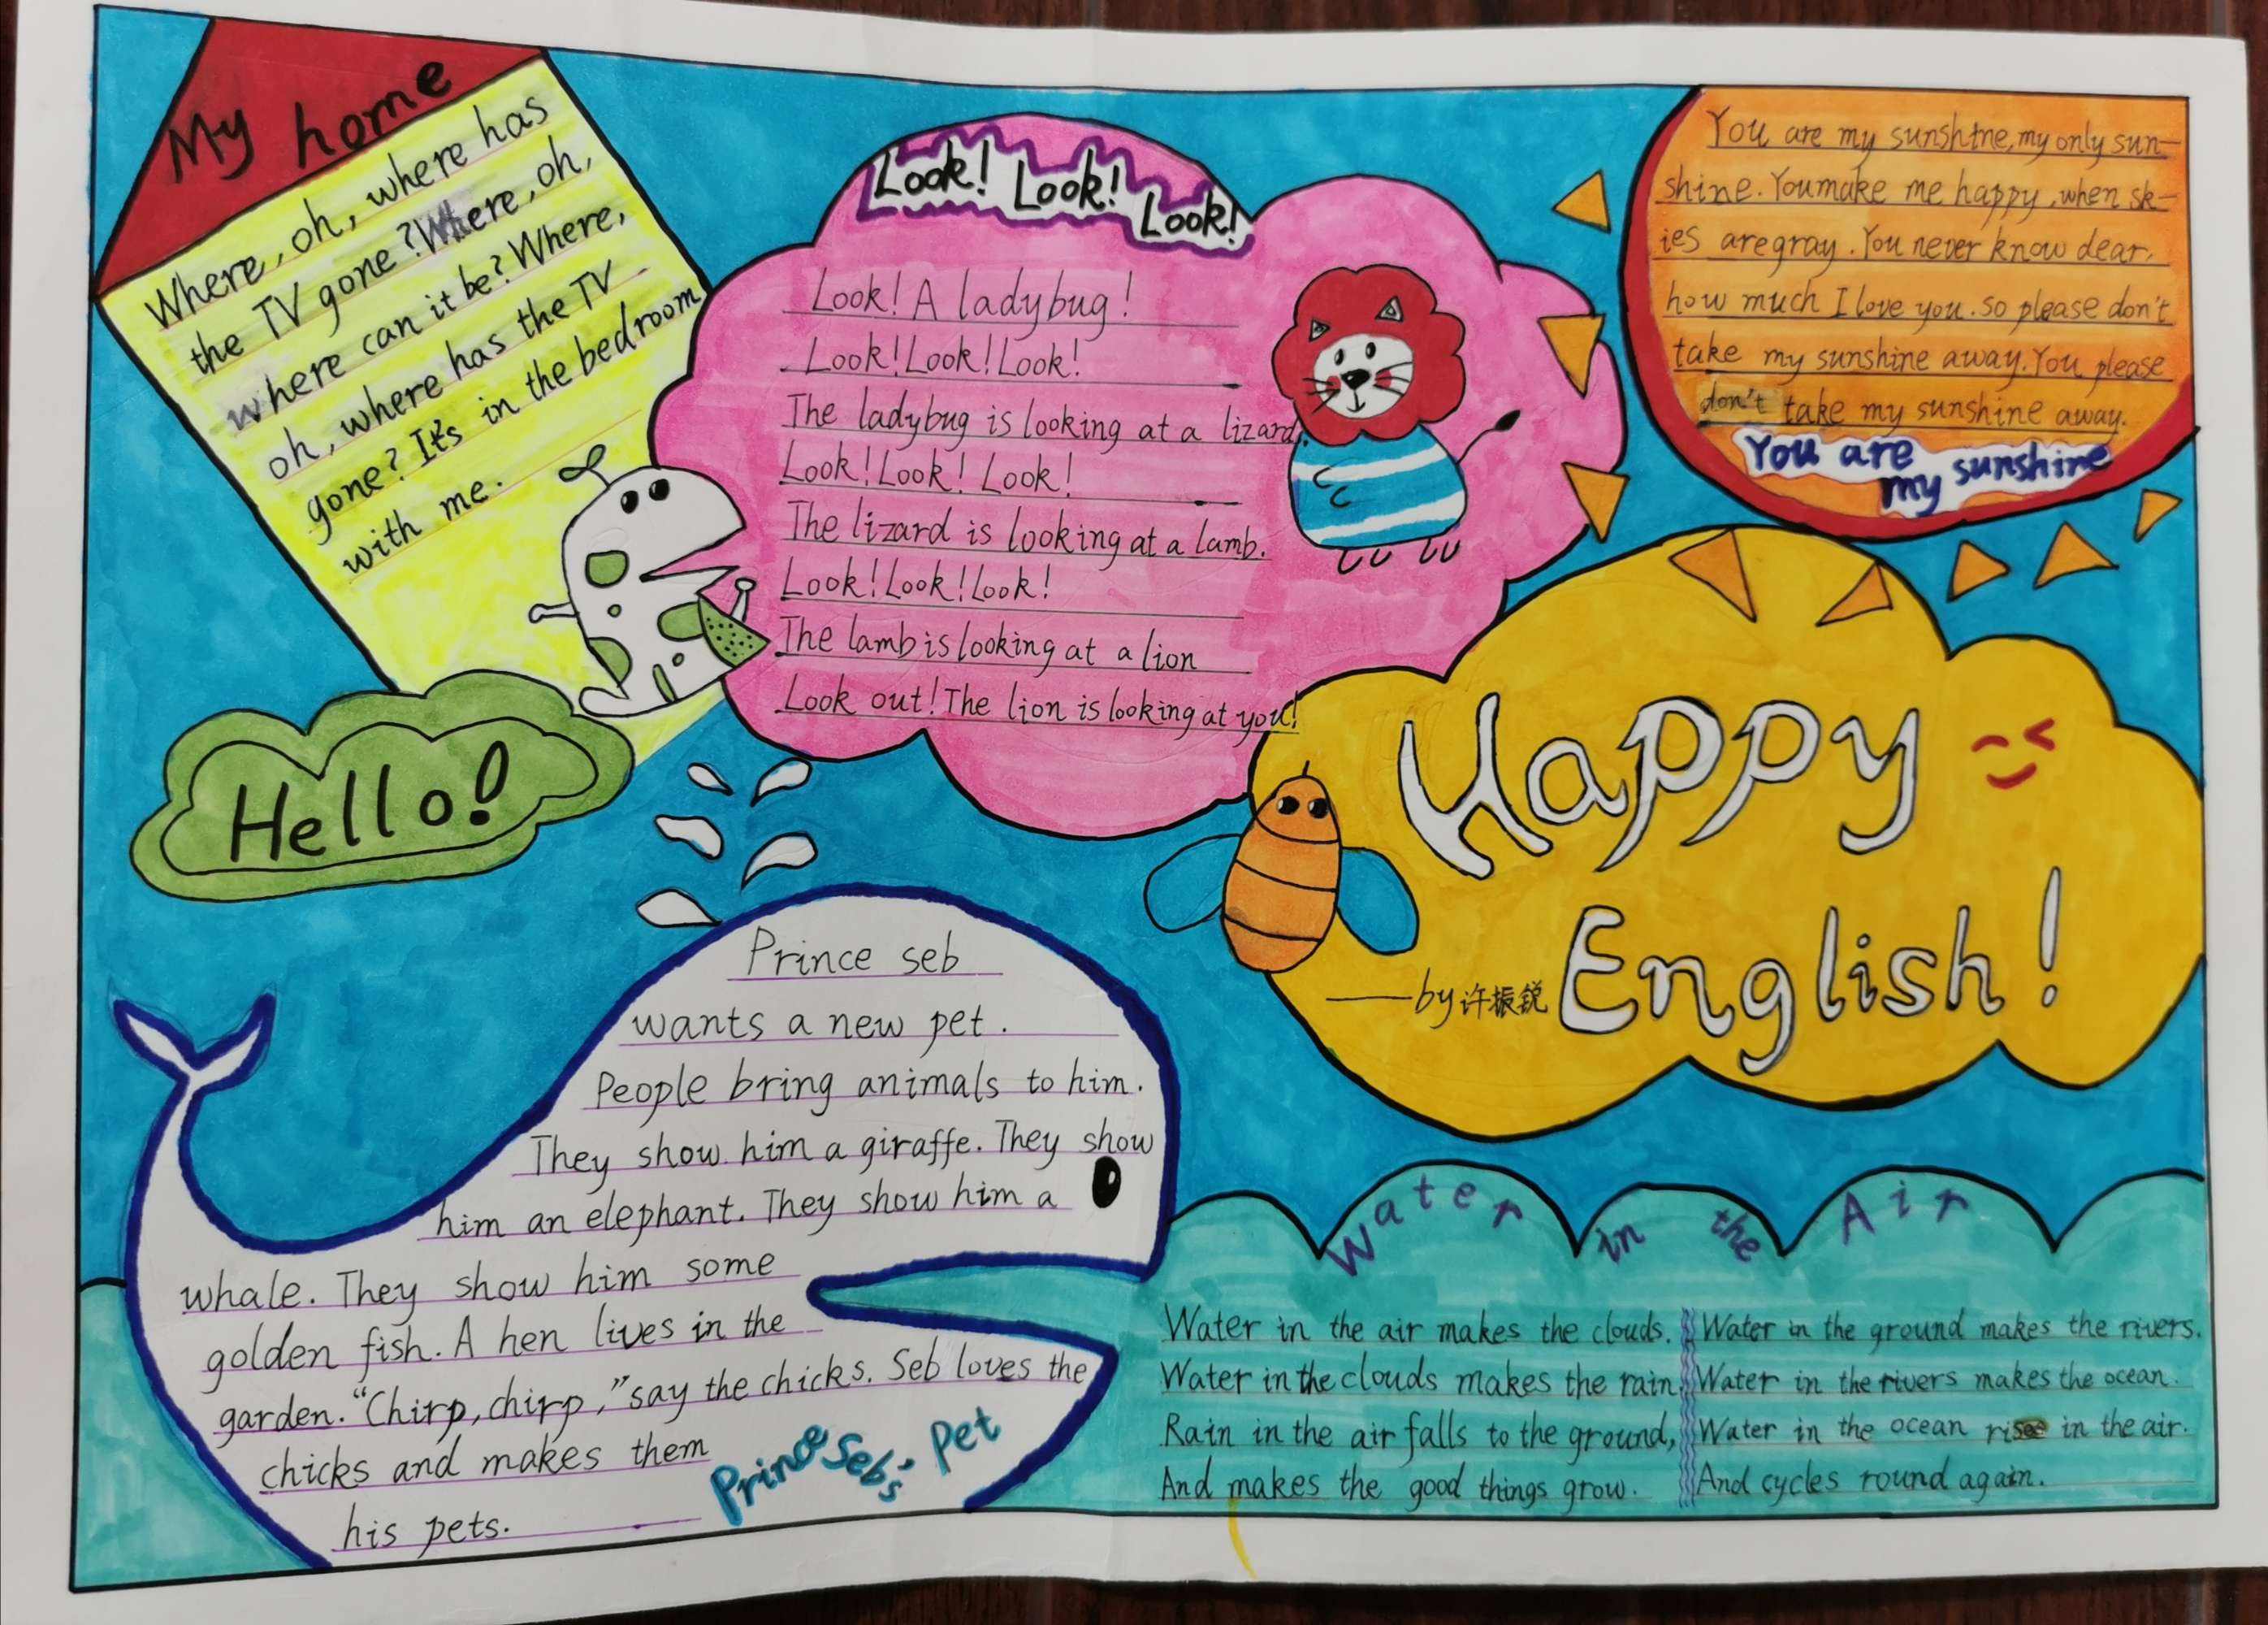 My home
Where, oh, where has
the TV gone? Where, oh,
where can it be? Where,
oh, where has the TV
gone? It's in the bedroom
with me.
Hello!
Look! Look! Look!
Look! A ladybug!
Look! Look! Look!
The ladybug is looking at a lizard.
Look! Look! Look!
The lizard is looking at a lamb.
Look! Look! look!
The lamb is looking at a lion
Look out! The lion is looking at you!
You are my sunshine, my only sun-
shine. You make me happy, when sk-
ies are gray. You never know dear,
how much I love you. so please don't
take my sunshine away. You please
don't take my sunshine away.
You are
my sunshine
Happy
English!
——by 许振锐
Prince seb
wants a new pet.
People bring animals to him.
They show him a giraffe. They show
him an elephant. They show him a
whale. They show him some
golden fish. A hen lives in the
garden. "Chirp, chirp," say the chicks. Seb loves the
chicks and makes them
his pets.
Prince Seb's Pet
Water in the Air
Water in the air makes the clouds.
Water in the clouds makes the rain,
Rain in the air falls to the ground,
And makes the good things grow.
Water in the ground makes the rivers.
Water in the rivers makes the ocean.
Water in the ocean rises in the air.
And cycles round again.